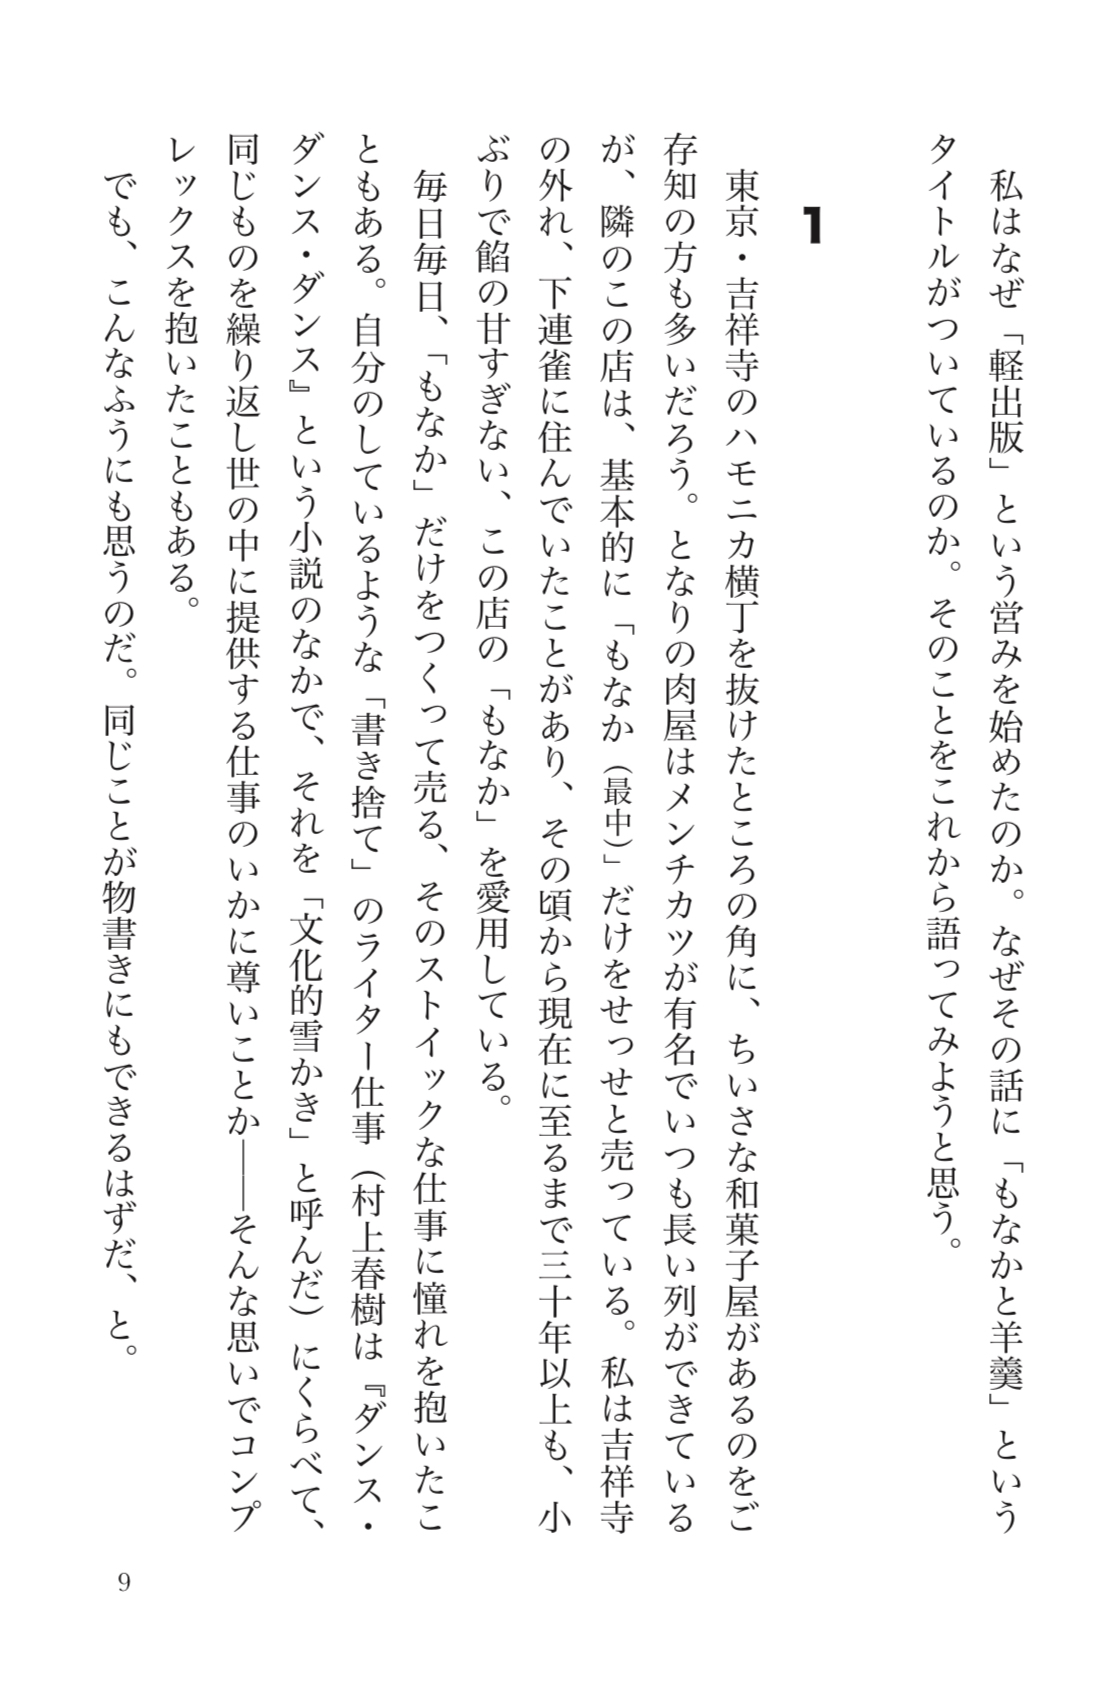 私はなぜ「軽出版」という営みを始めたのか。なぜその話に「もなかと羊羹」という
タイトルがついているのか。そのことをこれから語ってみようと思う。
1
東京・吉祥寺のハモニカ横丁を抜けたところの角に、ちいさな和菓子屋があるのをご
存知の方も多いだろう。となりの肉屋はメンチカツが有名でいつも長い列ができている
が、隣のこの店は、基本的に「もなか（最中）」だけをせっせと売っている。私は吉祥寺
の外れ、下連雀に住んでいたことがあり、その頃から現在に至るまで三十年以上も、小
ぶりで餡の甘すぎない、この店の「もなか」を愛用している。
毎日毎日、「もなか」だけをつくって売る、そのストイックな仕事に憧れを抱いたこ
ともある。自分のしているような「書き捨て」のライター仕事（村上春樹は『ダンス・
ダンス・ダンス』という小説のなかで、それを「文化的雪かき」と呼んだ）にくらべて、
同じものを繰り返し世の中に提供する仕事のいかに尊いことか――そんな思いでコンプ
レックスを抱いたこともある。
でも、こんなふうにも思うのだ。同じことが物書きにもできるはずだ、と。
9